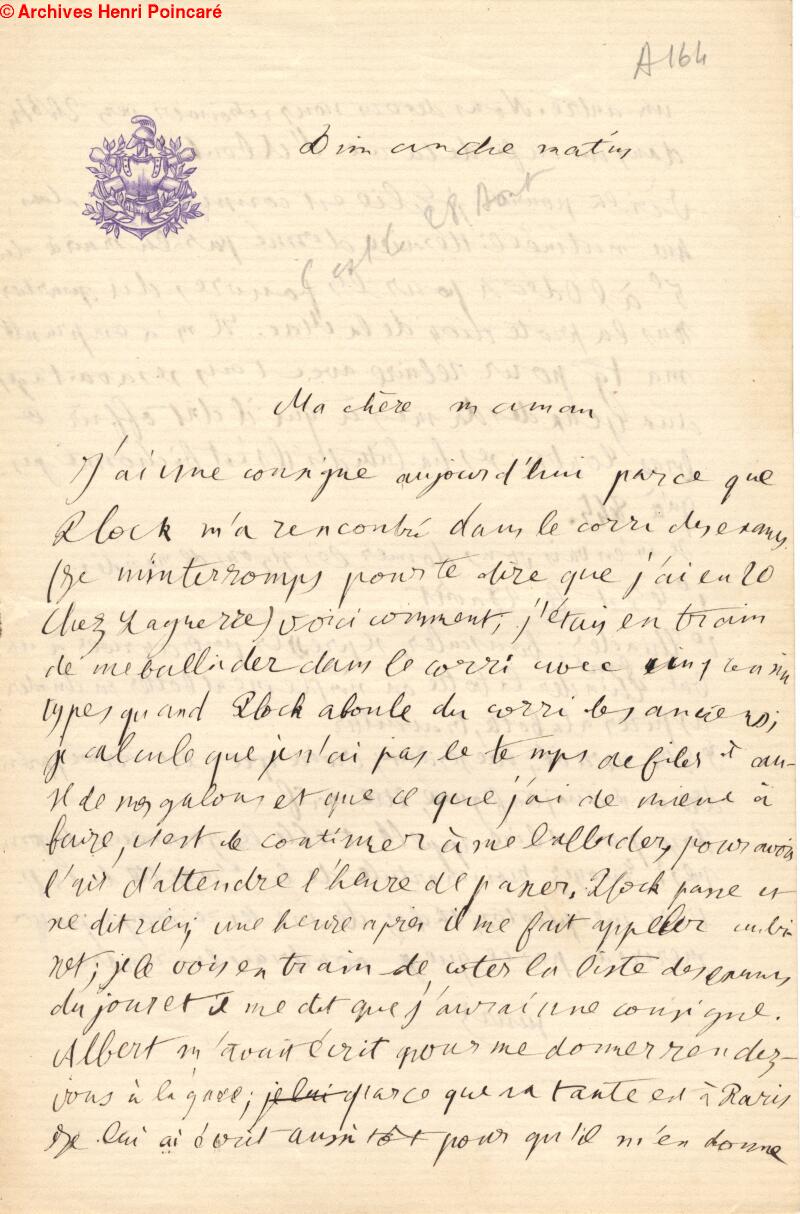 © Archives Henri Poincaré
A164
Dimanche matin
28 Aout
Ma chère maman
J'ai une consigne aujourd'hui parce que
Plock m'a rencontré dans le corri des exams.
(Je m'interromps pour te dire que j'ai eu 20
chez Laguerre) voici comment, j'étais en train
de me ballader dans le corri avec
types quand Plock aboule du corri des anciens;
je calcule que je n'ai pas le temps de filer et cau-
se de nos galons et que ce que j'ai de mieux à
faire, c'est de continuer à me ballader, pour avoir
l'air d'attendre l'heure de passer. Plock passe et
ne dit rien; une heure après il me fait appeler
net; je le vois en train de coter la liste des exams
du jour et il me dit que j'aurai une consigne.
Albert m'avait écrit pour me donner rendez-
vous à la gare; je lui parce que sa tante est à Paris
Je lui ai écrit aussitôt pour qu'il m'en donne